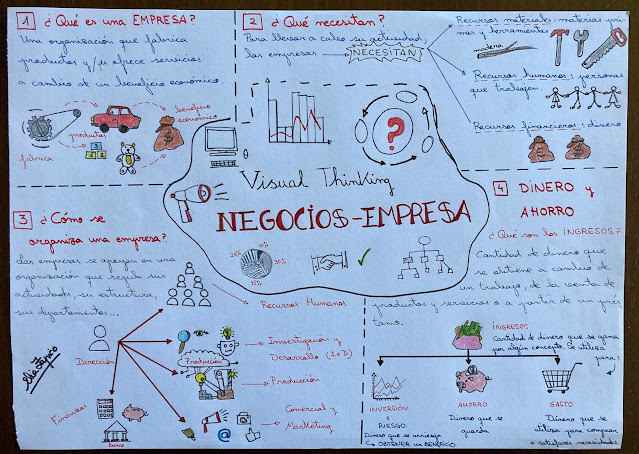 1 ¿Qué es una EMPRESA?
Una organización que fabrica
productos y/u ofrece servicios
a cambio de un beneficio económico.
fábrica
productos
1 2 3
beneficio
económico
2 ¿Qué necesitan?
Para llevar a cabo su actividad,
las empresas NECESITAN
Recursos materiales: materias pri-
mas y herramientas
madera
Recursos humanos: personas
que trabajen.
Recursos financieros: dinero
?
Visual Thinking
NEGOCIOS-EMPRESA
3 ¿Cómo se
organiza una empresa?
Las empresas se apoyan en una
organización que regula sus
actividades, su estructura,
sus departamentos...
Dirección
Recursos Humanos
Investigación y
Desarrollo (I+D)
Producción
Producción
Comercial y
Marketing
@
Finanzas
Banco
4 DINERO y
AHORRO
¿Qué son los INGRESOS?
Cantidad de dinero que
se obtiene a cambio de
un trabajo, de la venta de
productos y servicios o a partir de un prés-
tamo.
INGRESOS
Cantidad de dinero que se gana
por algún concepto. Se utiliza
para:
INVERSIÓN
y
RIESGO
Dinero que se arriesga
OBTENER un BENEFICIO
AHORRO
Dinero que se
guarda
GASTO
Dinero que se
utiliza para comprar
o satisfacer necesidades